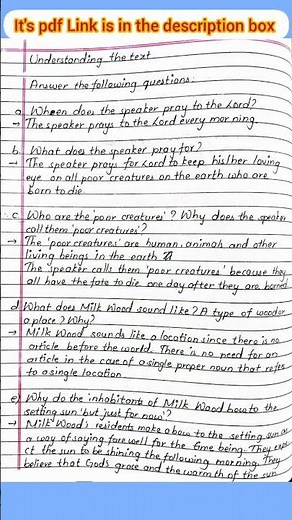 It's pdf Link is in the description box
Understanding the text
Answer the following questions.
a. When does the speaker pray to the Lord?
→ The speaker prays to the Lord every morning.
b. What does the speaker pray for?
→ The speaker prays for Lord to keep his/her loving
eye on all poor creatures on the earth who are
born to die.
c. Who are the 'poor creatures'? Why does the speaker
call them 'poor creatures'?
→ The 'poor creatures' are human, animals and other
living beings in the earth
The speaker calls them 'poor creatures' because they
all have the fate to die one day after they are borned
d. What does Milk Wood sound like? A type of wood or
a place? Why?
→ Milk Wood sounds like a location since there is no
article before the world. There is no need for an
article in the case of a single proper noun that refers
to a single location.
e) Why do the inhabitants of Milk Wood bow to the
setting sun 'but just for now'?
→ Milk Wood's residents make a bow to the setting sun as
a way of saying farewell for the time being. They expe
ct the sun to be shining the following morning. They
believe that God's grace and the warmth of the sun